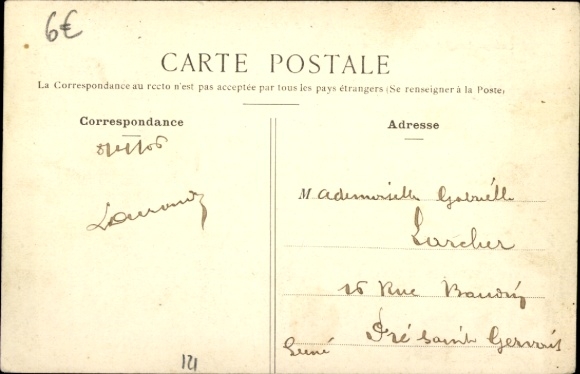 6€
CARTE POSTALE
La Correspondance au recto n'est pas acceptée par tous les pays étrangers (Se renseigner à la Poste)
Correspondance
Adresse
Mademoiselle Gabrielle
Larcher
16 Rue
Pré Saint Gervais
121